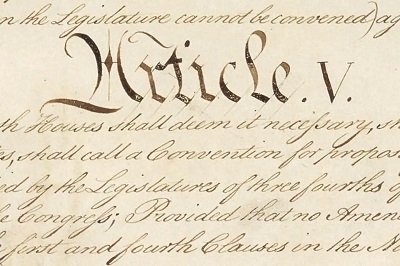 n the Legislature cannot be convened) ag
Article. V.
th Houses shall deem it necessary, sh
es, shall call a Convention for propos
ed by the Legislatures of three fourths of
e Congress; Provided that no Amen
e first and fourth Clauses in the N